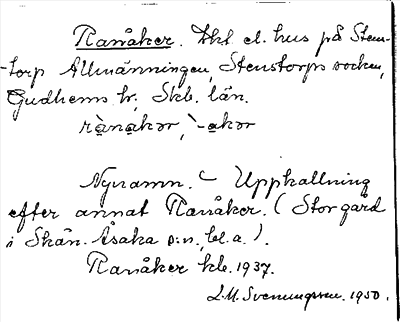 Ranåker. Skt el. hus på Sten-
torp Allmänningen, Stenstorps socken,
Gudhems hr, Skb. län.
rànakər, `-akər
Nynamn. – Uppkallning
efter annat Ranåker. (Storgård
i Skån. Åsaka s:n, bl.a.).
Ranåker kb. 1937.
L.M. Svenungsson. 1950.